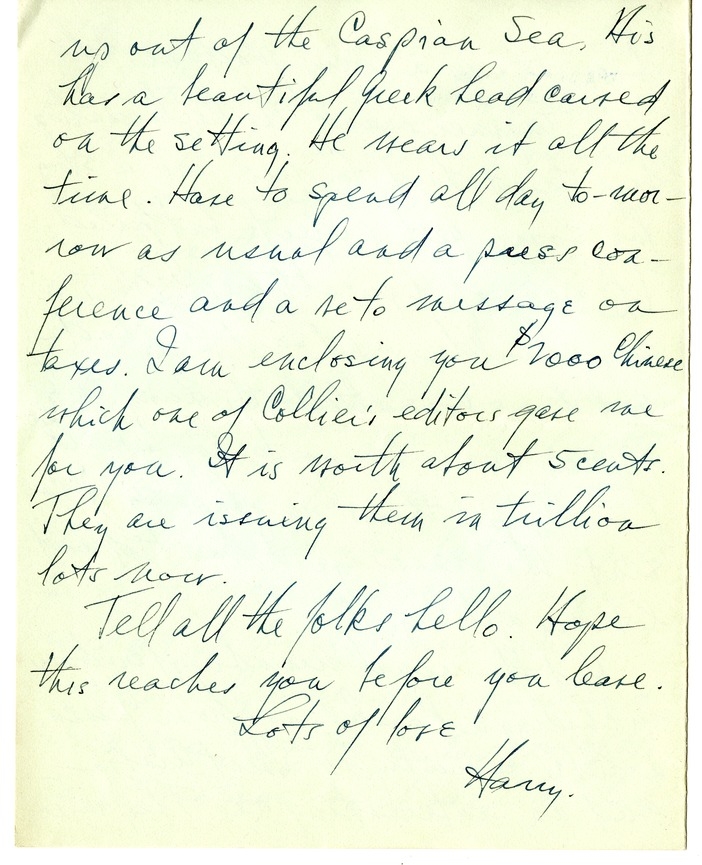 up out of the Caspian Sea. His
has a beautiful Greek head carved
on the setting. He wears it all the
time. Have to spend all day to-mor-
row as usual and a press con-
ference and a veto message on
taxes. I am enclosing you $2000 Chinese
which one of Collier's editors gave me
for you. It is worth about 5 cents.
They are issuing them in trillion
lots now.
Tell all the folks hello. Hope
this reaches you before you leave.
Lots of love
Harry.